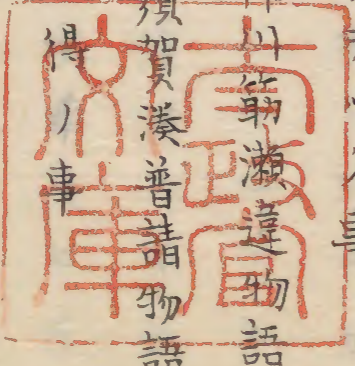 川筋瀬違物語
須賀湊普請物語
得ノ事
太政官
文庫